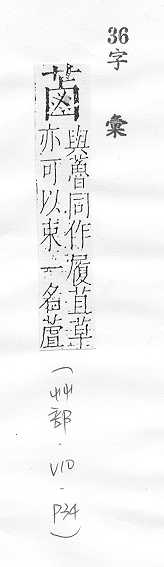 36
字彙
蓾
與䕡同作履苴草
亦可以束一名蔖
(艸部.V10-P34)